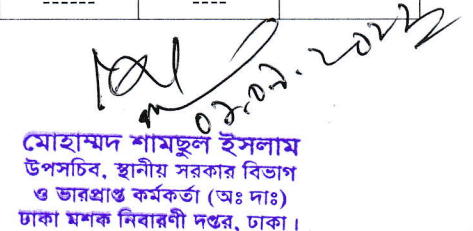 মোহাম্মদ শামছুল ইসলাম
উপসচিব, স্থানীয় সরকার বিভাগ
ও ভারপ্রাপ্ত কর্মকর্তা (অঃ দাঃ)
ঢাকা মশক নিবারণী দপ্তর, ঢাকা।